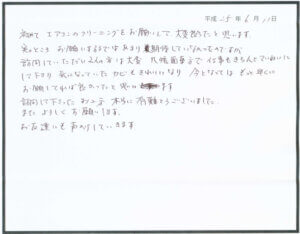 平成25年6月11日
初めて エアコンのクリーニングをお願いして、大変助かったと思います。
実のところ お願いするまではあまり期待していなかったのですが
訪問していただいた2人の方は大変 礼儀 で 仕事もきちんとていねいに
して下さり 気になっていた カビもきれいになり 今となっては もっと早くに
お願いしてれば良かったと思います
訪問して下さった 本当に有難うございました。
また よろしくお願いします。
お友達にも 声かけしていきます